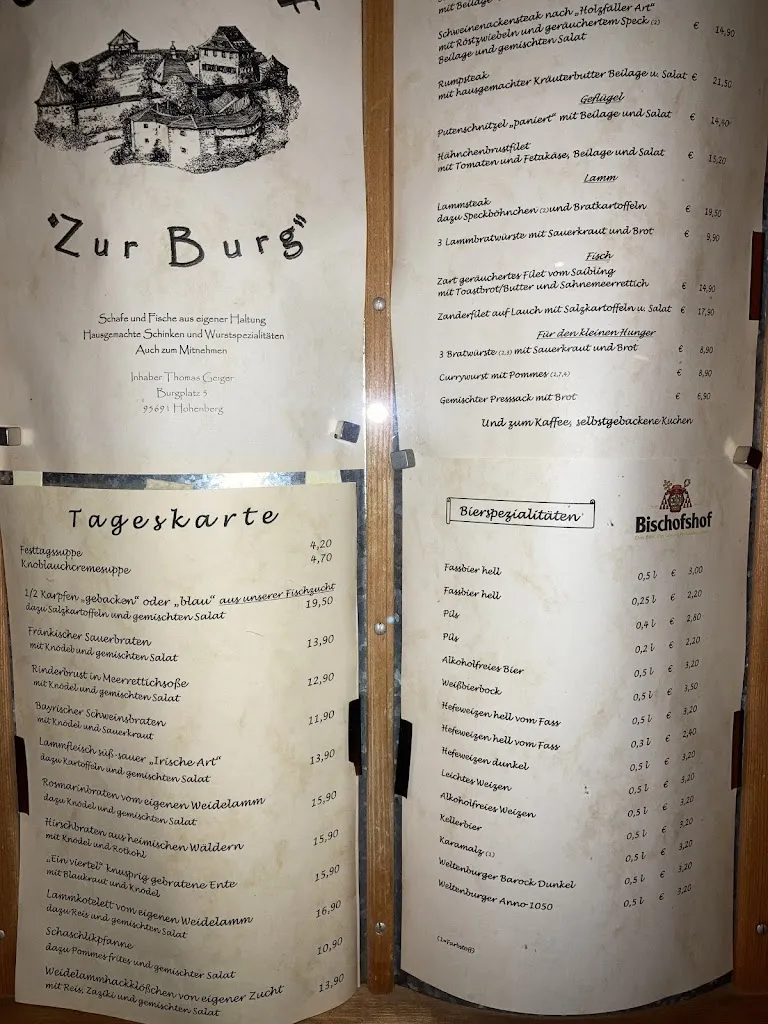 "Zur Burg"
Schafe und Fische aus eigener Haltung
Hausgemachte Schinken und Wurstspezialitäten
Auch zum Mitnehmen
Inhaber Thomas Geiger
Burgplatz 5
95691 Hohenberg
Tageskarte
Festtagssuppe 4,20
Knoblauchcremesuppe 4,70
1/2 Karpfen „gebacken" oder „blau" aus unserer Fischzucht
dazu Salzkartoffeln und gemischten Salat 19,50
Fränkischer Sauerbraten 13,90
mit Knödel und gemischten Salat
Rinderbrust in Meerrettichsoße 12,90
mit Knödel und gemischten Salat
Bayrischer Schweinsbraten 11,90
mit Knödel und Sauerkraut
Lammfleisch süß-sauer „Irische Art" 13,90
dazu Kartoffeln und gemischten Salat
Rosmarinbraten vom eigenen Weidelamm 15,90
dazu Knödel und gemischten Salat
Hirschbraten aus heimischen Wäldern 15,90
mit Knödel und Rotkohl
„Ein viertel" knusprig gebratene Ente 15,90
mit Blaukraut und Knödel
Lammkotelett vom eigenen Weidelamm 16,90
dazu Reis und gemischten Salat
Schaschlikpfanne 10,90
dazu Pommes frites und gemischter Salat
Weidelammhackklößchen von eigener Zucht 13,90
mit Reis, Zaziki und gemischten Salat
mit Beilage
Schweinenackensteak nach „Holzfäller Art"
mit Röstzwiebeln und geräuchertem Speck (2) € 14,90
Beilage und gemischten Salat
Rumpsteak
mit hausgemachter Kräuterbutter Beilage u. Salat € 21,50
Geflügel
Putenschnitzel „paniert" mit Beilage und Salat € 14,60
Hähnchenbrustfilet
mit Tomaten und Fetakäse, Beilage und Salat € 15,20
Lamm
Lammsteak
dazu Speckböhnchen (2) und Bratkartoffeln € 19,50
3 Lammbratwürste mit Sauerkraut und Brot € 9,90
Fisch
Zart geräuchertes Filet vom Saibling
mit Toastbrot/Butter und Sahnemeerrettich € 14,90
Zanderfilet auf Lauch mit Salzkartoffeln u. Salat € 17,90
Für den kleinen Hunger
3 Bratwürste (2,3) mit Sauerkraut und Brot € 8,90
Currywurst mit Pommes (2,7,4) € 8,90
Gemischter Presssack mit Brot € 6,90
Und zum Kaffee, selbstgebackene Kuchen
Bierspezialitäten
Bischofshof
Fassbier hell 0,5 l € 3,00
Fassbier hell 0,25 l € 2,20
Pils 0,4 l € 2,80
Pils 0,2 l € 2,20
Alkoholfreies Bier 0,5 l € 3,20
Weißbierbock 0,5 l € 3,50
Hefeweizen hell vom Fass 0,5 l € 3,20
Hefeweizen hell vom Fass 0,3 l € 2,40
Hefeweizen dunkel 0,5 l € 3,20
Leichtes Weizen 0,5 l € 3,20
Alkoholfreies Weizen 0,5 l € 3,20
Kellerbier 0,5 l € 3,20
Karamalz (1) 0,5 l € 3,20
Weltenburger Barock Dunkel 0,5 l € 3,20
Weltenburger Anno 1050 0,5 l € 3,20
(1=Farbstoff)